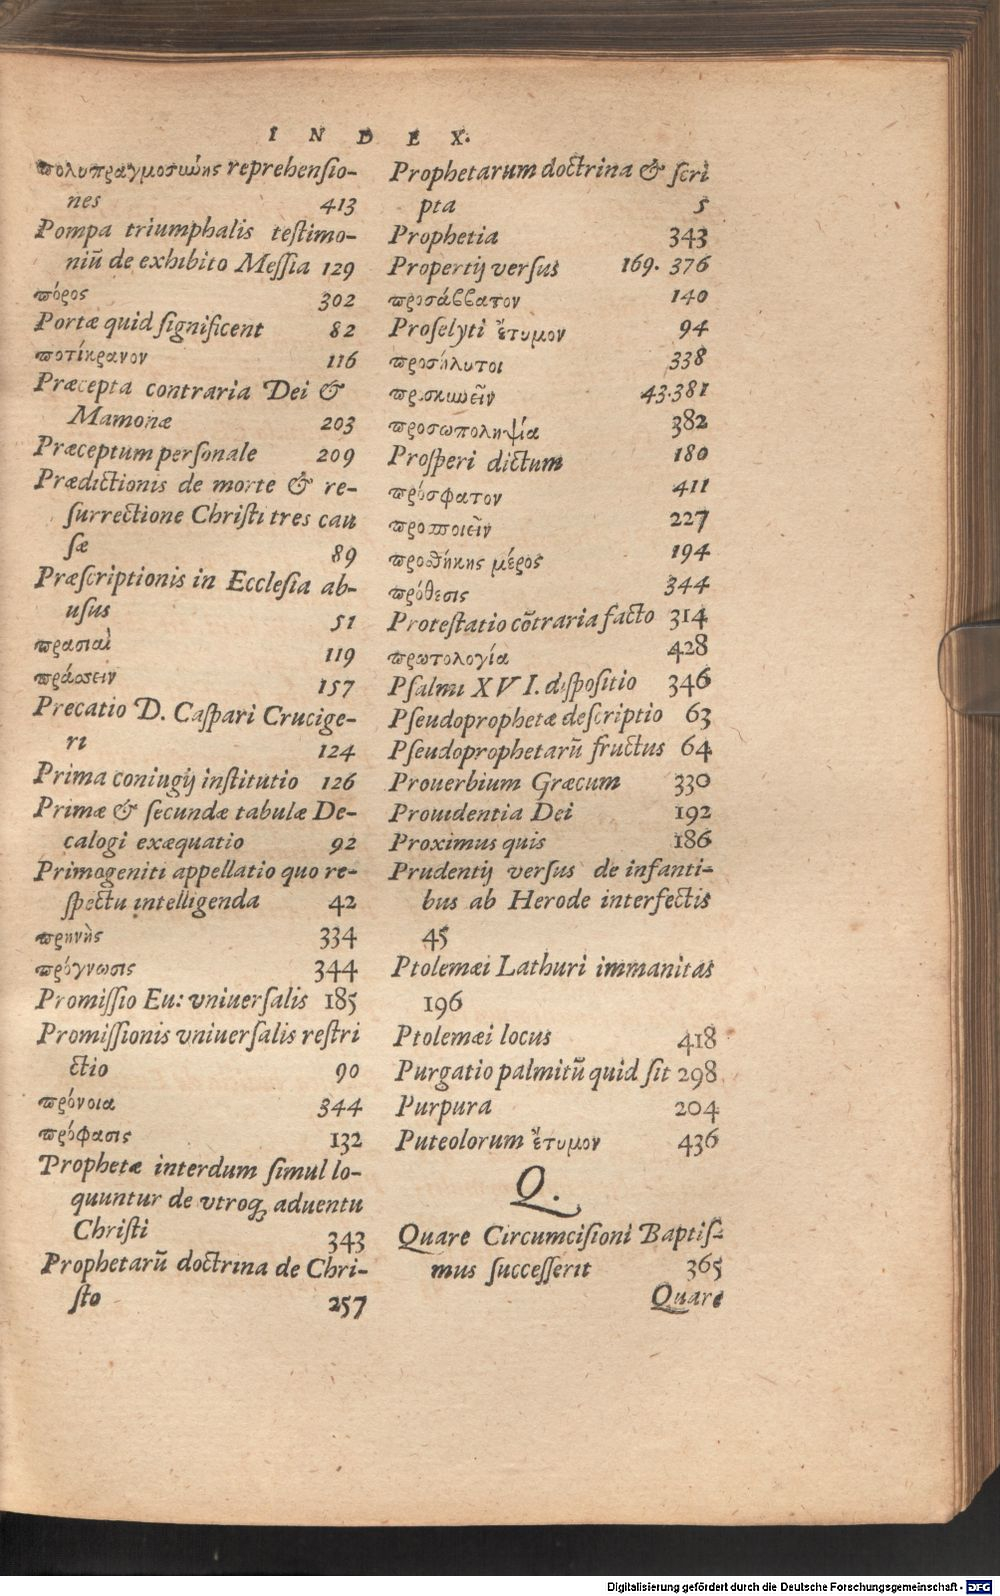 INDEX.
πολυπραγμοσύνης reprehensio-
nes 413
Pompa triumphalis testimo-
niũ de exhibito Messia 129
πόρος 302
Portæ quid significent 82
ποτίκρανον 116
Præcepta contraria Dei &
Mamonæ 203
Præceptum personale 209
Prædictionis de morte & re-
surrectione Christi tres cau
sæ 89
Præscriptionis in Ecclesia ab-
usus 51
πρασιαὶ 119
πράσσειν 157
Precatio D. Caspari Crucige-
ri 124
Prima coniugij institutio 126
Primæ & secundæ tabulæ De-
calogi exæquatio 92
Primogeniti appellatio quo re-
spectu intelligenda 42
πρηνὴς 334
πρόγνωσις 344
Promissio Eu: vniuersalis 185
Promissionis vniuersalis restri
ctio 90
πρόνοια 344
πρόφασις 132
Prophetæ interdum simul lo-
quuntur de vtroq; aduentu
Christi 343
Prophetarũ doctrina de Chri-
sto 257
Prophetarum doctrina & scri
pta 5
Prophetia 343
Propertij versus 169. 376
προσάββατον 140
Proselyti ἔτυμον 94
προσήλυτοι 338
πρσκυνεῖν 43.381
προσωποληψία 382
Prosperi dictum 180
πρόσφατον 411
προσποιεῖν 227
προσθήκης μέρος 194
πρόθεσις 344
Protestatio cõtraria facto 314
πρωτολογία 428
Psalmi XVI. dispositio 346
Pseudoprophetæ descriptio 63
Pseudoprophetarũ fructus 64
Prouerbium Græcum 330
Prouidentia Dei 192
Proximus quis 186
Prudentij versus de infanti-
bus ab Herode interfectis
45
Ptolemæi Lathuri immanitas
196
Ptolemæi locus 418
Purgatio palmitũ quid sit 298
Purpura 204
Puteolorum ἔτυμον 436
Q.
Quare Circumcisioni Baptis-
mus successerit 365
Quare
Digitalisierung gefördert durch die Deutsche Forschungsgemeinschaft - DFG